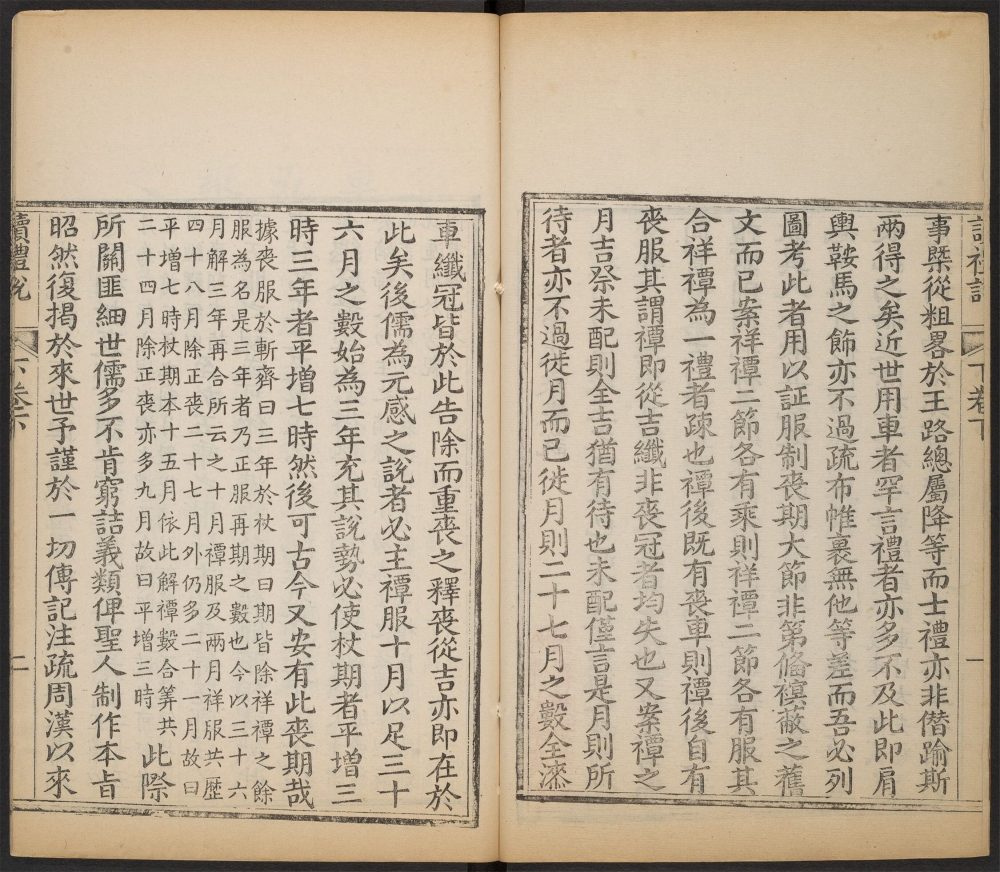 讀禮說
下卷下
一
事槩從粗畧於王路總屬降等而士禮亦非僭踰斯
兩得之矣近世用車者罕言禮者亦多不及此即肩
輿鞍馬之節亦不過疏布帷裏無他等差而吾必列
圖考此者用以証服制喪期大節非第偹禩蔽之舊
文而已案祥禫二節各有乘則祥禫二節各有服其
合祥禫為一禮者疎也禫後既有喪車則禫後自有
喪服其謂禫即從吉纖非喪冠者均失也又案禫之
月吉祭未配則全吉猶有待也未配僅言是月則所
待者亦不過徙月而已徙月則二十七月之數全漆
車纖冠皆於此告除而重喪之釋喪從吉亦即在於
此矣後儒為元感之說者必主禫服十月以足三十
六月之數始為三年充其說勢必使杖期者平增三
時三年者平增七時然後可古今又安有此喪期哉
據喪服於斬齊曰三年於杖期曰期皆除祥禫之餘
服為名是三年者乃正服再期之數也今以三十六
月解三年再合所云之十月禫服及兩月祥服共歷
四十八月除正喪二十七月外仍多二十一月故曰
平增七時杖期本十五月依此解禫數合筭共
二十四月除正喪亦多九月故曰平增三時
此際
所關匪細世儒多不肯窮詰義類俾聖人制作本旨
昭然復揭於來世予謹於一切傳記注疏周漢以來
讀禮說
下卷下
二